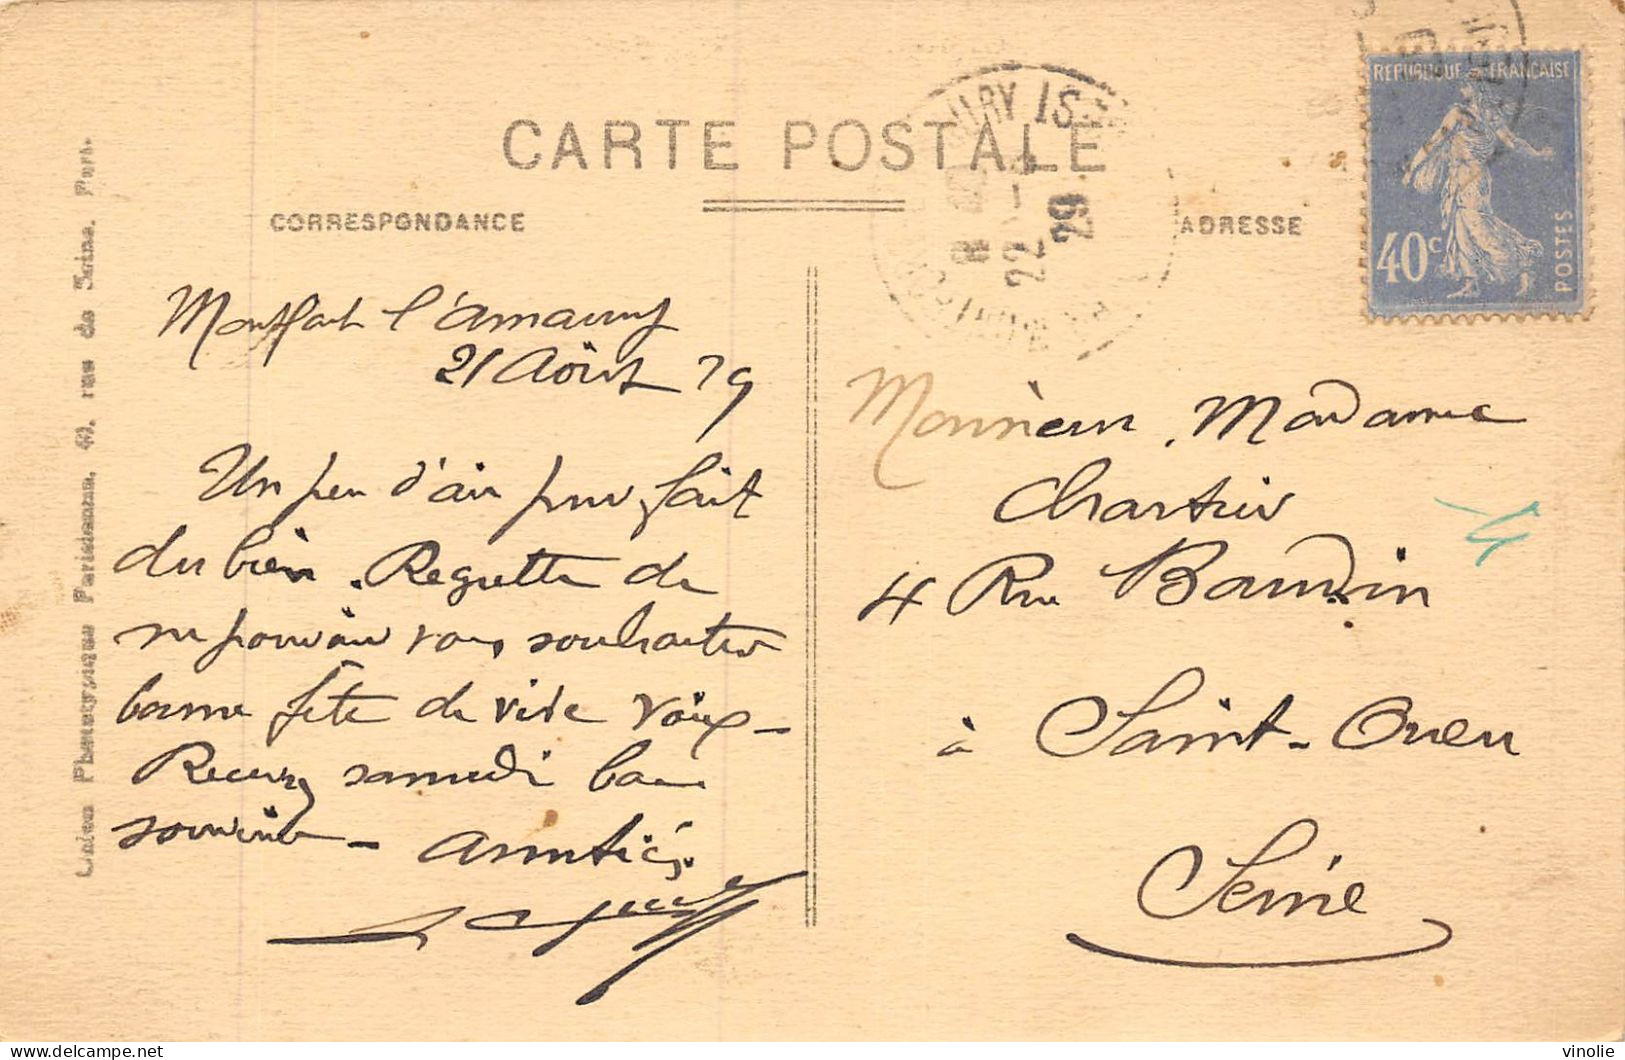 CARTE POSTALE
CORRESPONDANCE
ADRESSE
REPUBLIQUE FRANCAISE
40c
POSTES
22
29
Montfort l'Amaury
21 Août 29
Un peu d'air pur fait
du bien. Regrette de
ne pouvoir vous souhaiter
bonne fête de vive voix -
Recevez samedi bon
souvenir - Amitiés
Monsieur, Madame
Chartier
4 Rue Baudin
à Saint-Ouen
Seine
Union Phototypique Parisienne, rue de Seine, Paris.
delcampe.net
vinolie